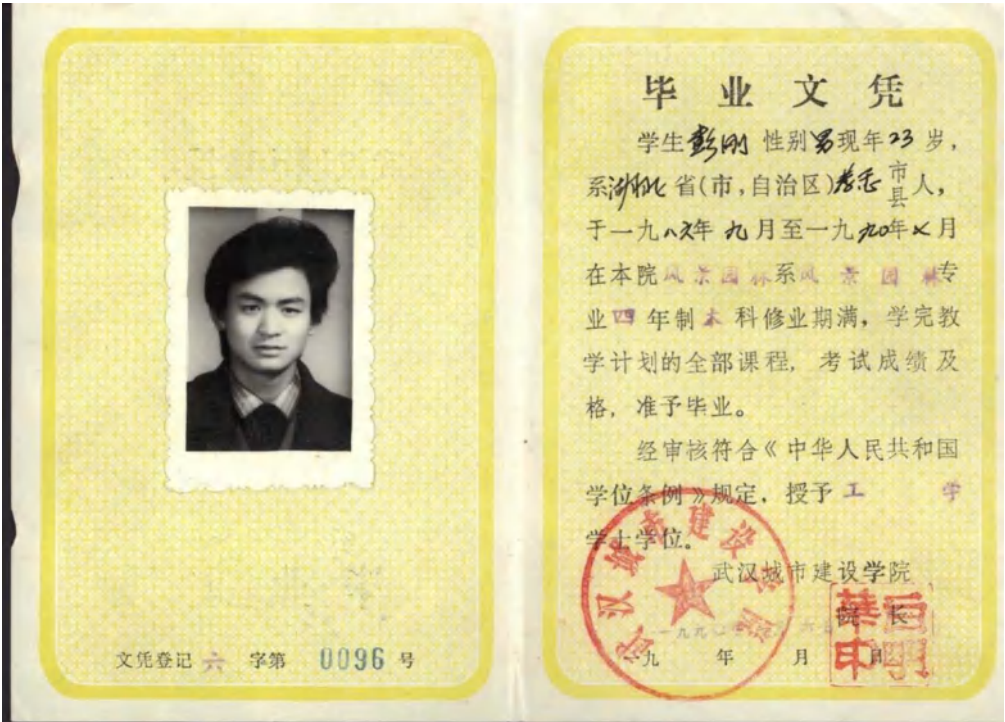 文凭登记 六 字第 0096 号
毕业文凭
学生彭刚 性别男现年23岁，
系湖北省(市，自治区)孝感市县人，
于一九八六年九月至一九九〇年七月
在本院风景园林系风景园林专
业四年制本科修业期满，学完教
学计划的全部课程，考试成绩及
格，准予毕业。
经审核符合《中华人民共和国
学位条例》规定，授予工学
学士学位。
武汉城市建设学院
院长
一九 年 月 日
武汉城市建设学院